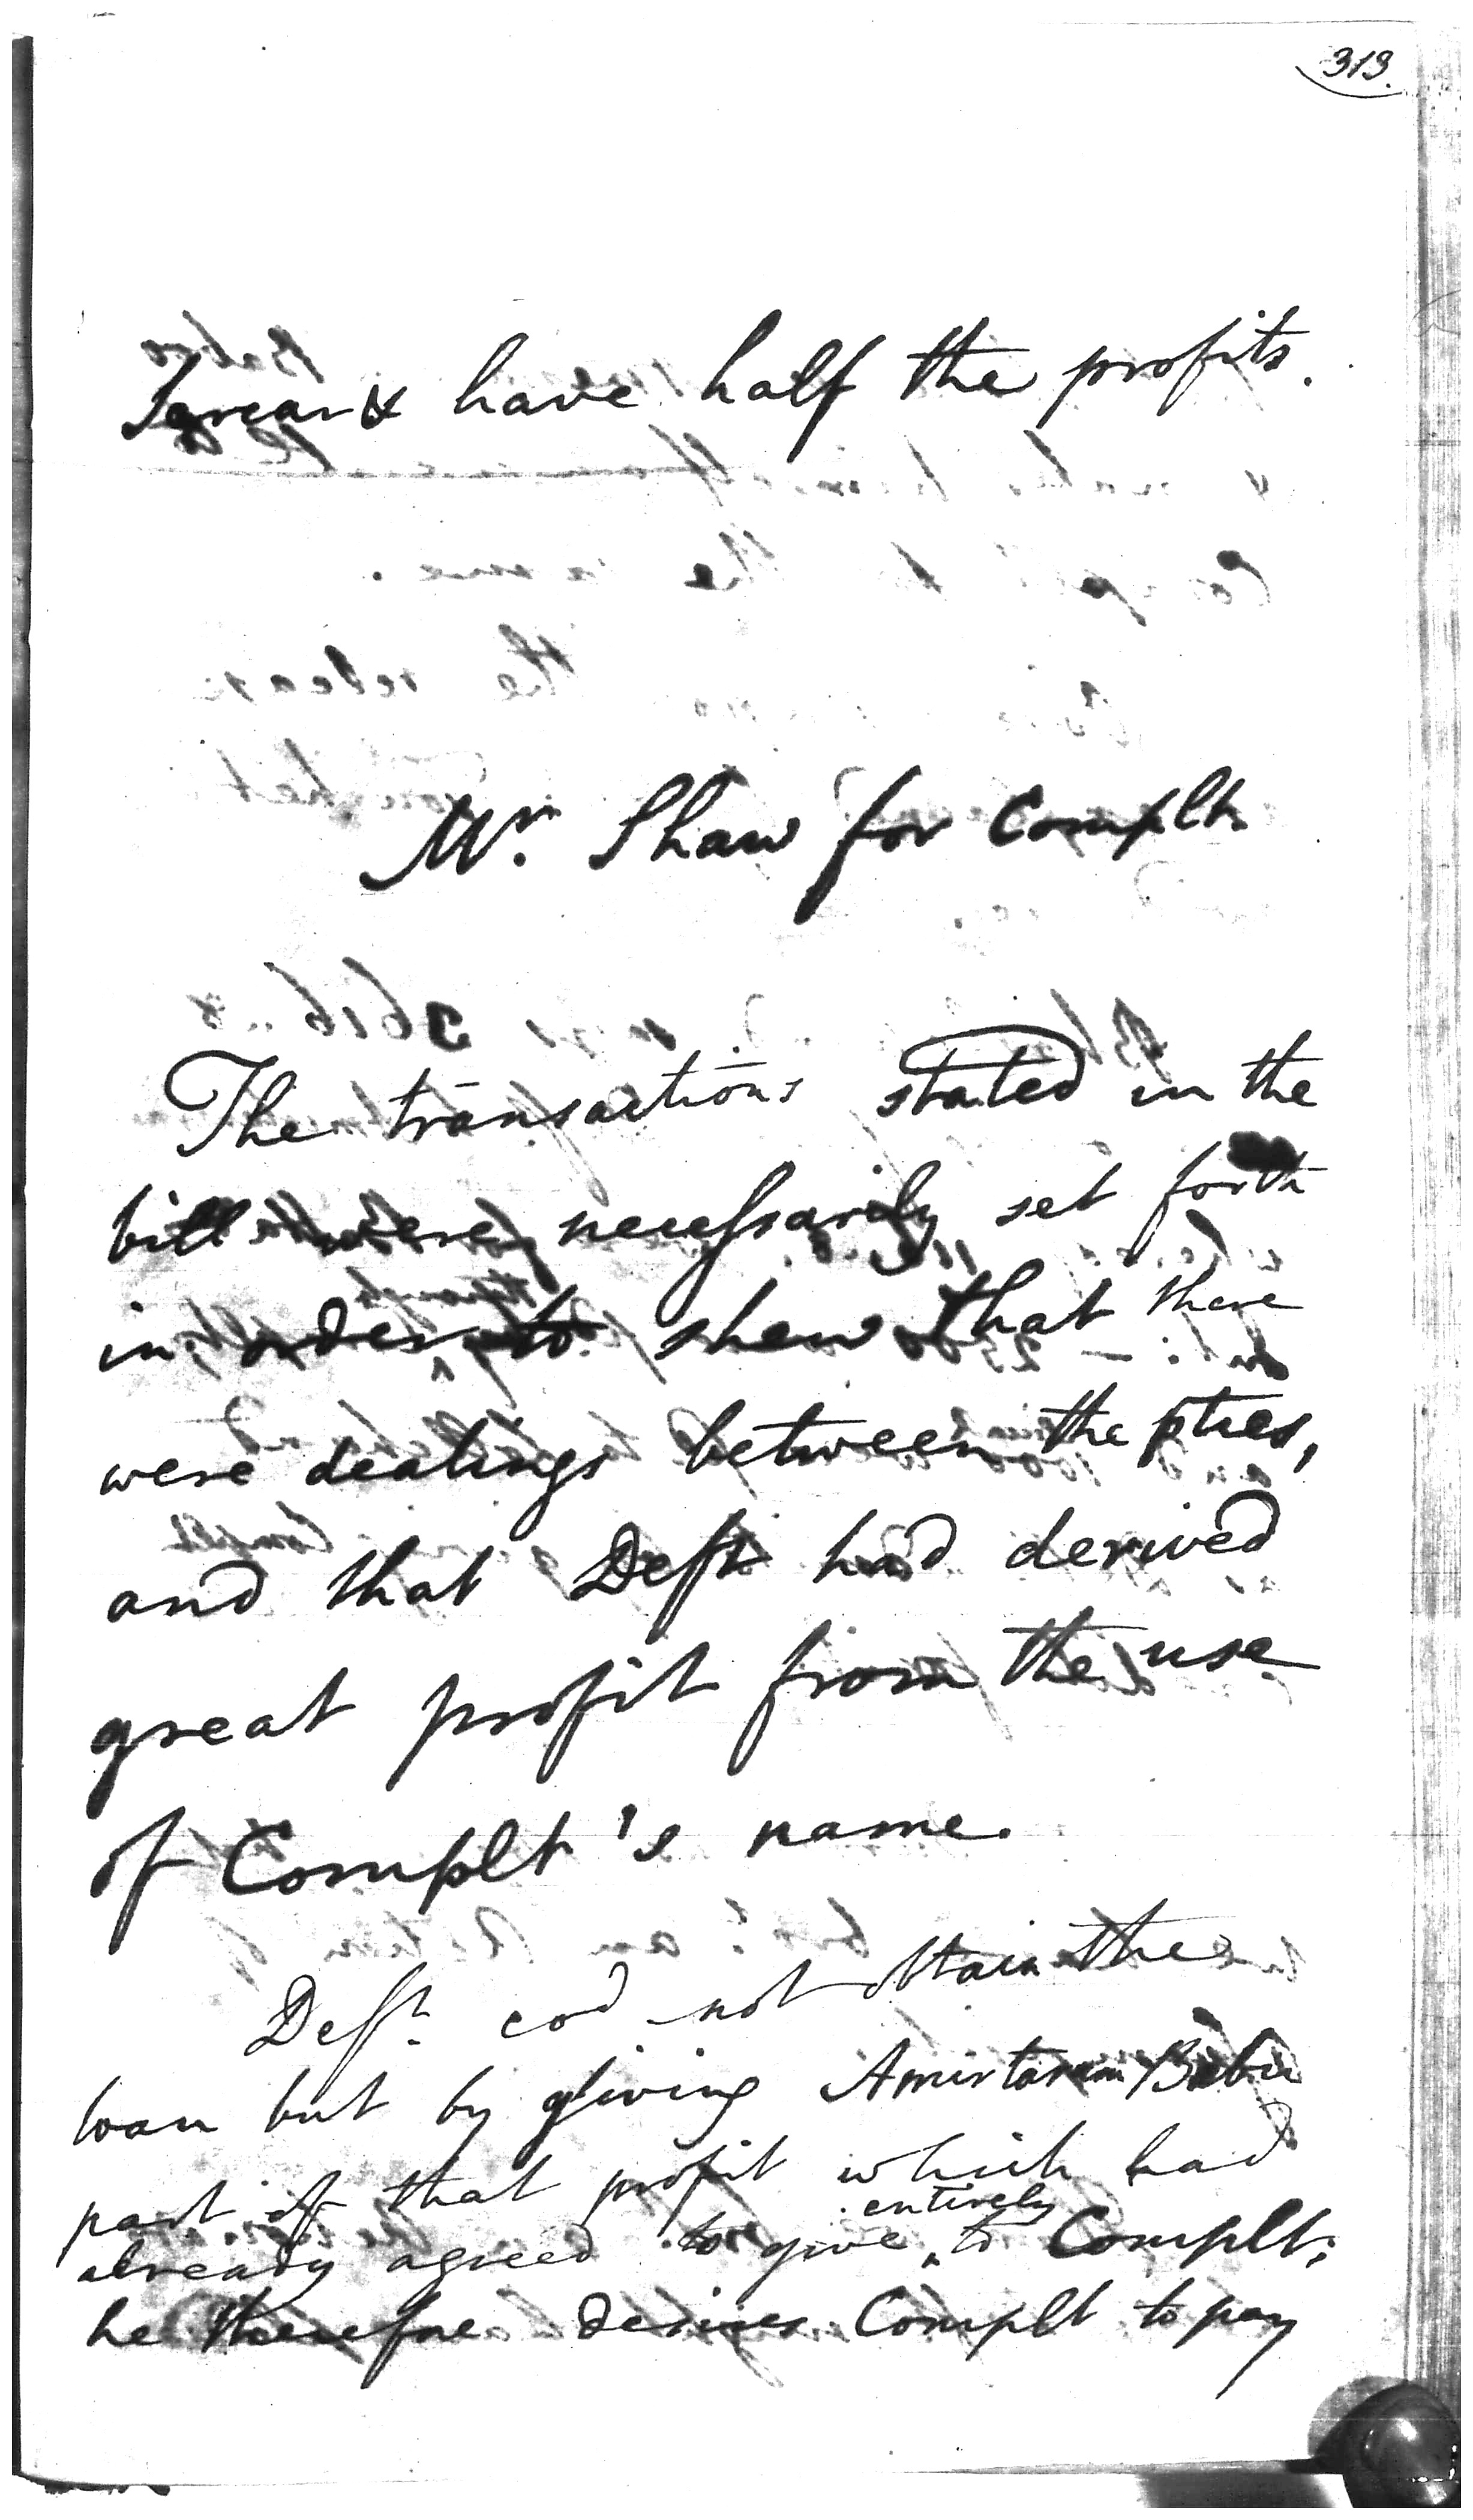 313.
& have half the profits.
Mr. Shaw for Complt.
The transactions stated in the
bill were necessarily set forth
in order to shew that there
were dealings between the pties,
and that Deft had derived
great profit from the use
of Complt's name.
Deft. cod not obtain the
loan but by giving Amirtaram Babu
part of that profit which had
already agreed to give entirely to Complt;
he therefore desires Complt to pay